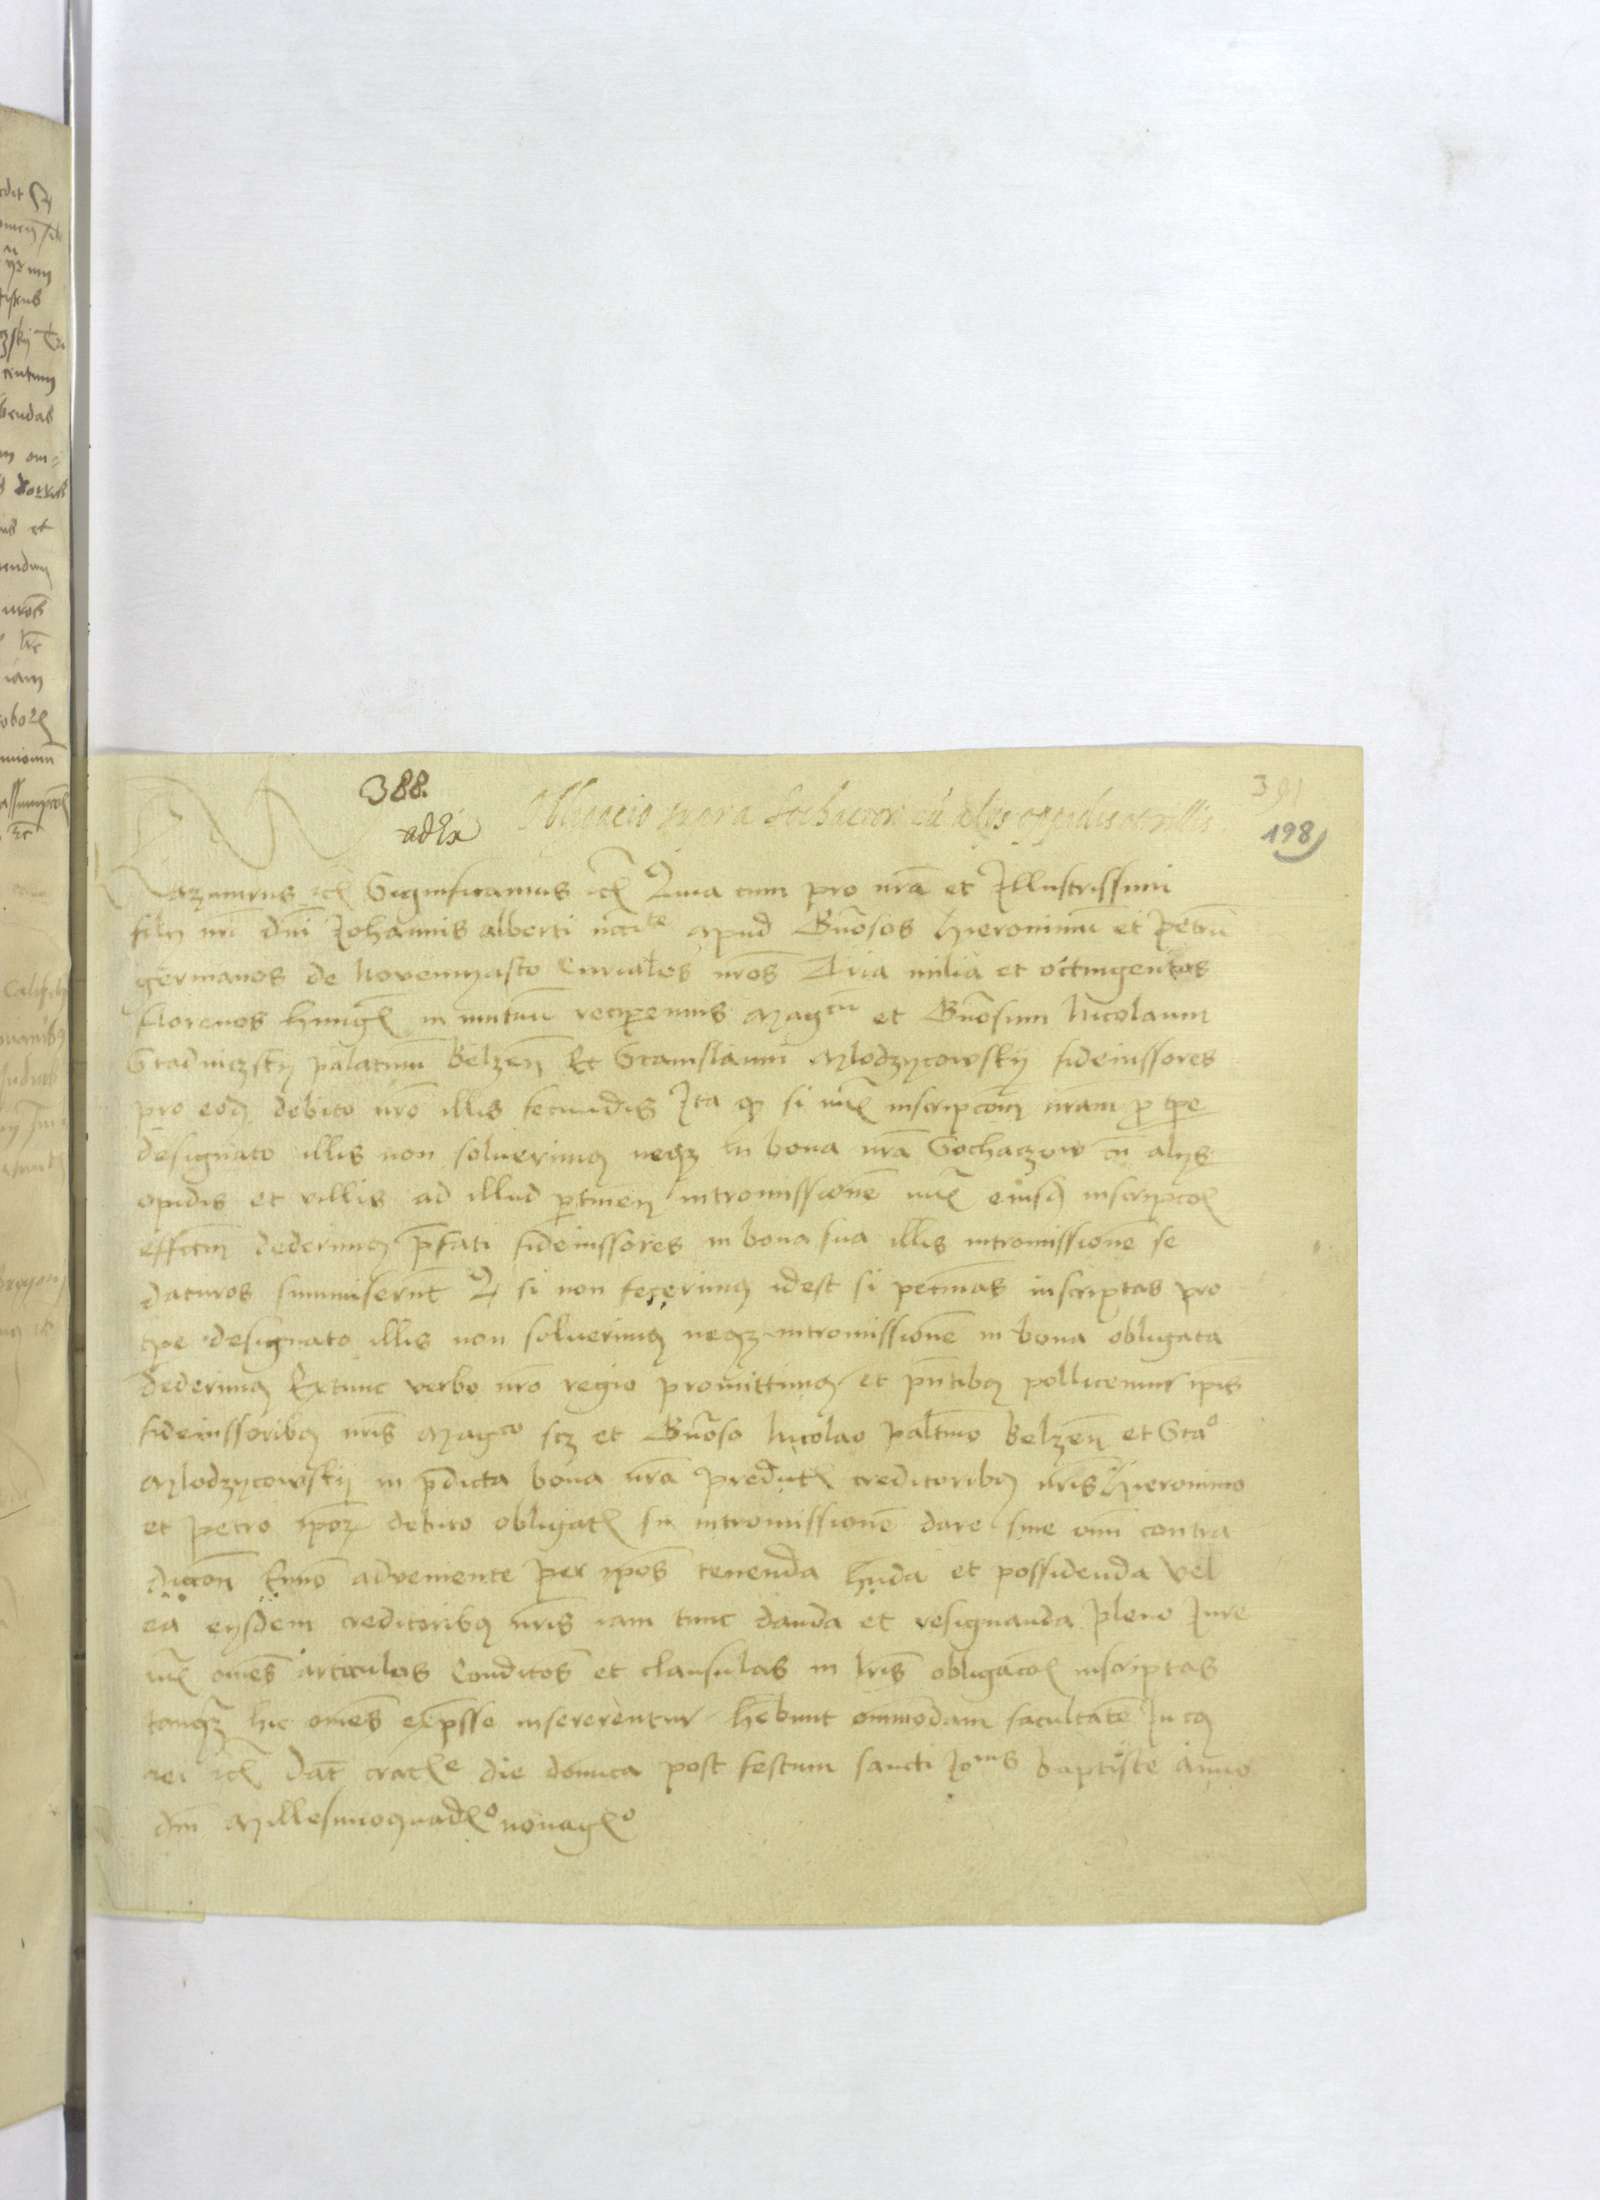 388.
391
adEx
Obligacio supra Sochaczow cũ alys oppidis et villis
198
Kazimirus etc̃ Significamus etc̃ Quia cum pro nr̃a et Illustrissimi
filij nr̃i dñi Johannis alberti nc̃ite apud Gñosos Hieronimũ et Petrũ
germanos de Novemyasto Curiales nr̃os Tria milia et octingentos
florenos hungẽ in mutuũ recepimus Magcũ et Gñosum Nicolaum
palatinũ Belzeñ Et Stanislaum Mlodzyeowskÿ fideiussores
pro eodẽ debito nr̃o illis Ita qd si iux̃ inscripcoẽm nr̃am p tpe
designato illis non soluerimq̃ neqz in bona nr̃a Sochaczow cũ alÿs
opidis et villis ad illud ptineñ intromissionẽ iux̃ eiusd̃ inscripcoĩs
effectũ dederimq̃ p̃fati fideiussores in bona sua illis intromissionẽ se
daturos summiserũt Qd si non fecerimq̃ idest si pecunias inscriptas pro
tpe designato illis non soluerimq̃ neqz intromissionẽ in bona obligata
dederimq̃ Extunc verbo nr̃o regio promittimq̃ et pñtibq̃ pollicemur ip̃is
fideiussoribq̃ nr̃is Magco scz et Gñoso Nicolao Paltino Belzeñ et Stao
Mlodzyeowskÿ in p̃dicta bona nr̃a predictĩs creditoribq̃ nr̃is Hieronimo
et Petro ip̃oꝝ debito obligatĩs intromissionẽ dare sine oñi contra
diccoñe advemente per ip̃os tenenda hñda et possidenda vel
ea eÿsdem creditoribq̃ nr̃is iam tunc danda et resignanda pleno Jure
iux̃ om̃es articulos Condicoẽs et clausulas in lr̃is obligacoĩs inscriptas
tanqz hic om̃es exp̃sse insererentur hẽbunt om̃imodam facultatẽ In cuiq̃
rei etc̃ Dat̃ crac̃e die domĩca post festum sancti Joñis baptiste Anno
dñi Millesimoquadr̃o nonagẽo